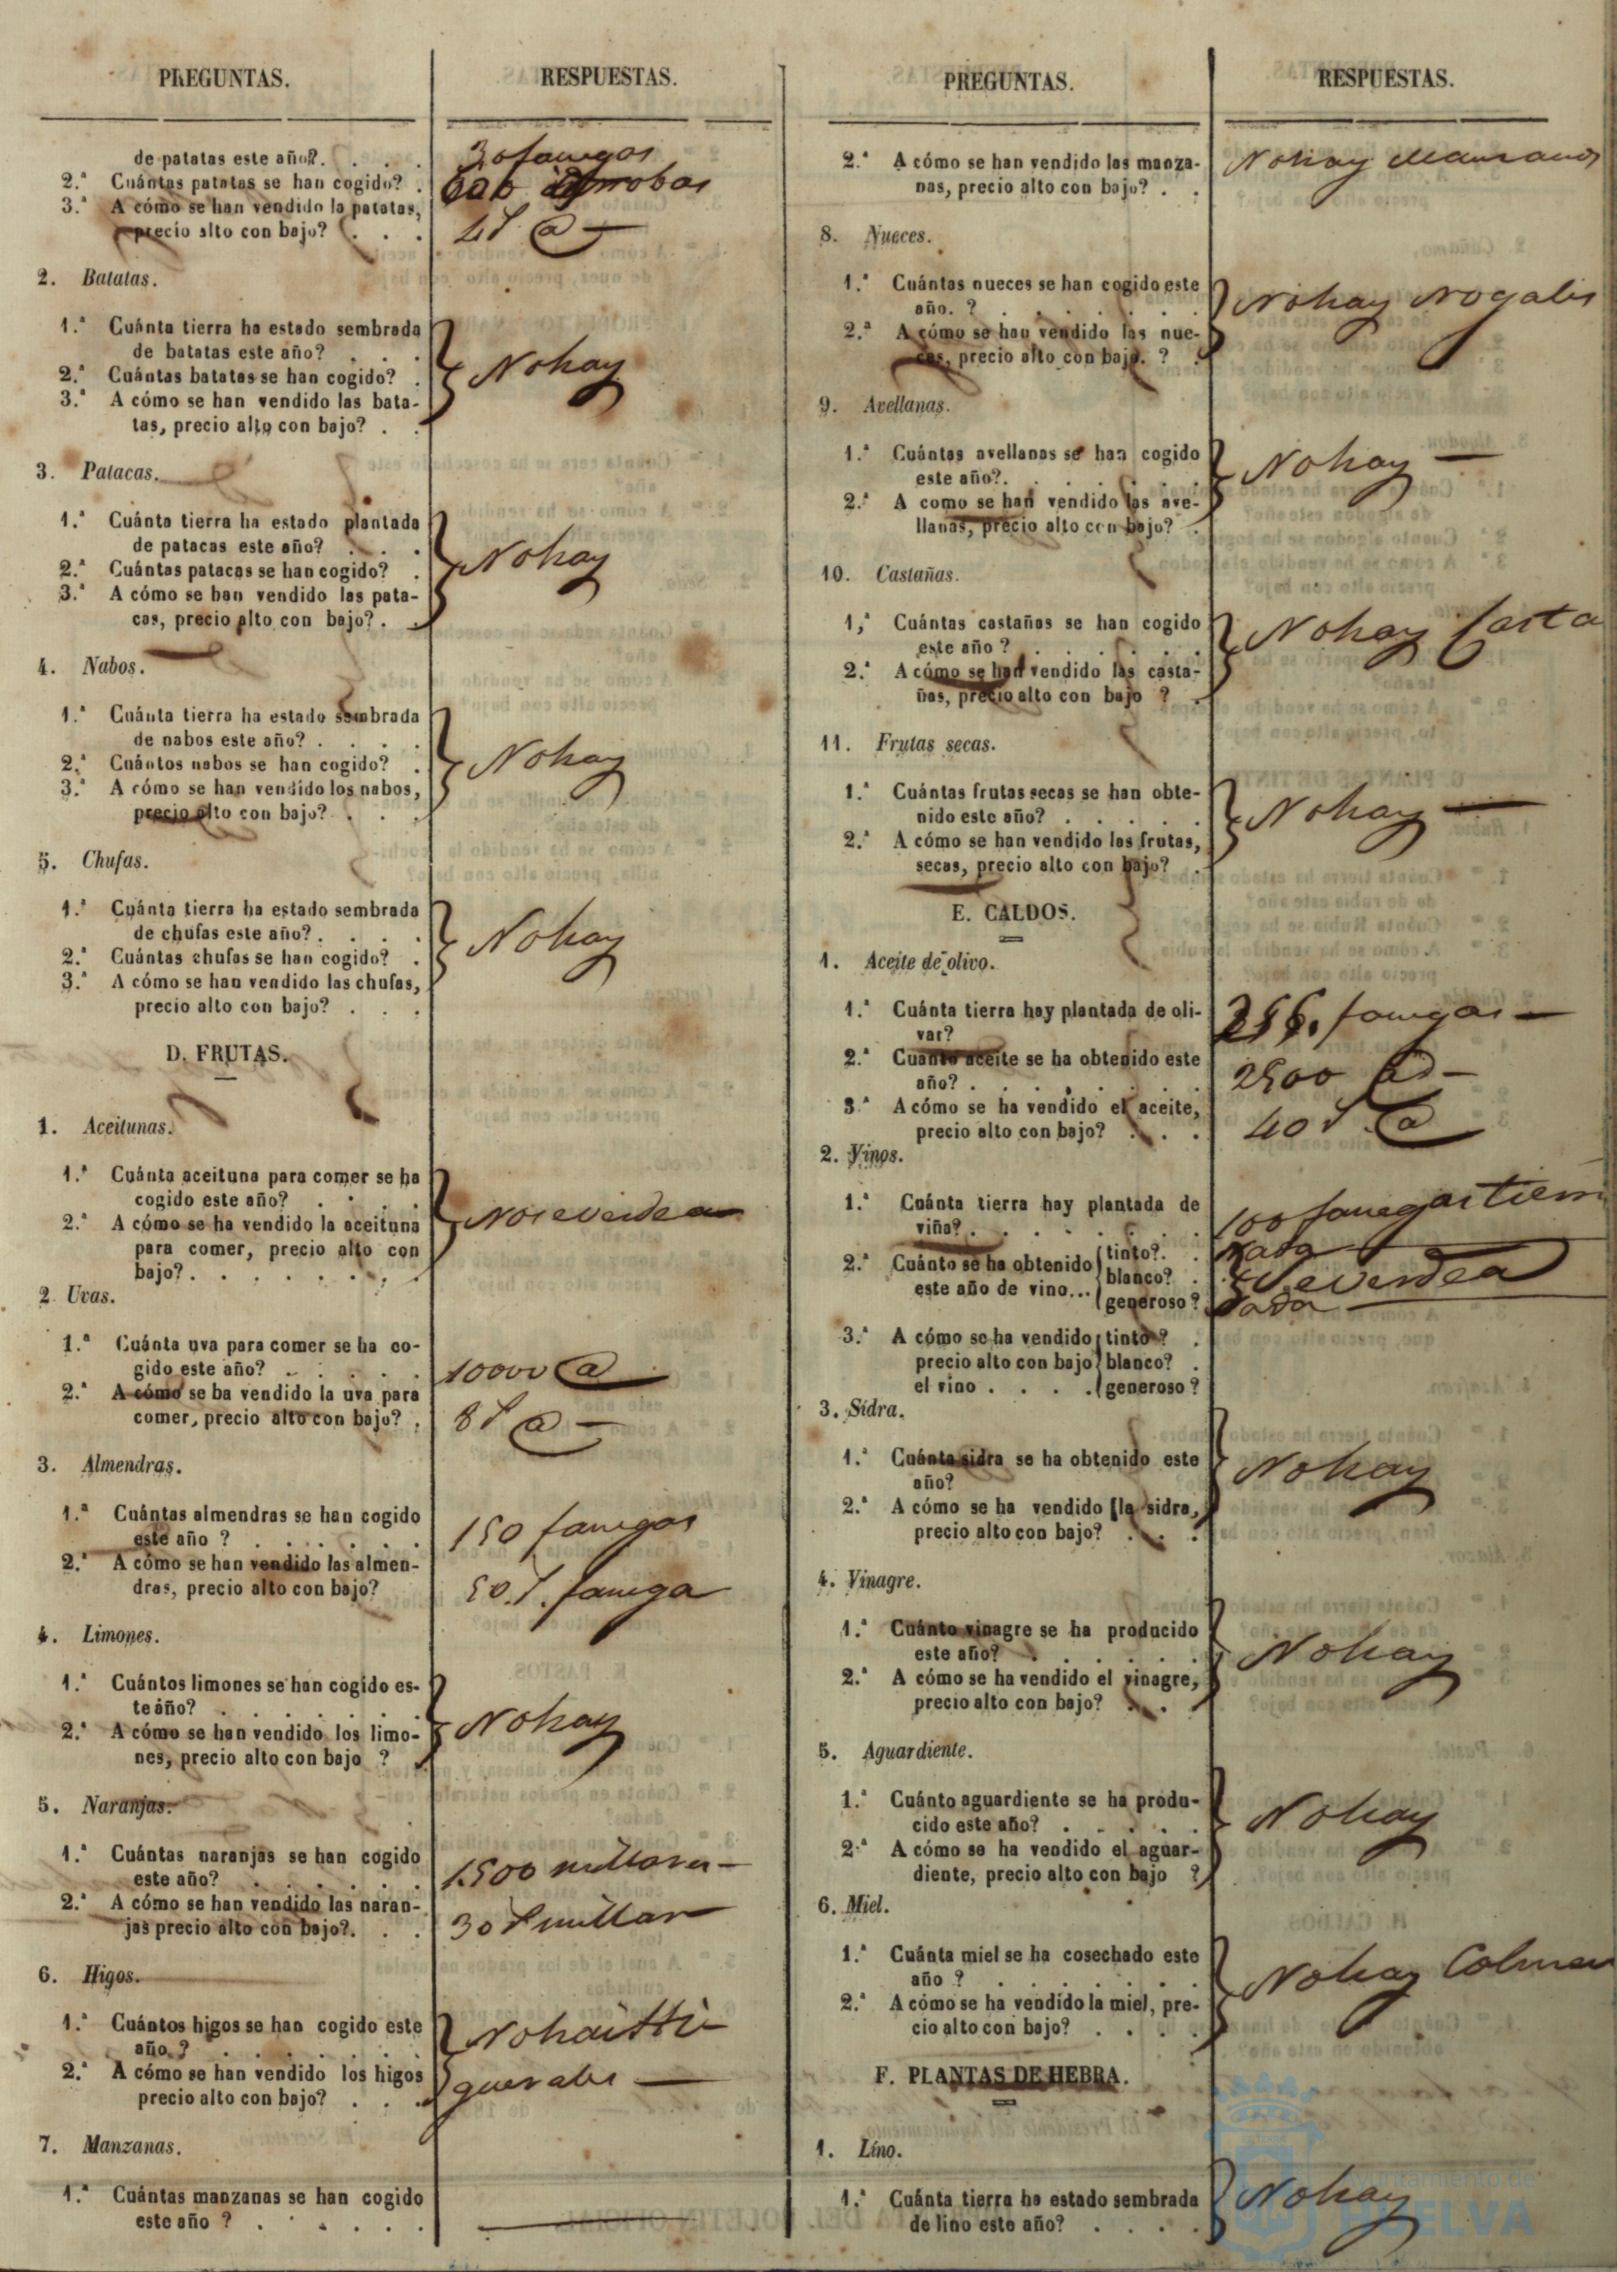 PREGUNTAS.
RESPUESTAS.
de patatas este año?. . . .
30 fanegas
2.ª Cuántas patatas se han cogido? .
600 arrobas
3.ª A cómo se han vendido la patatas,
precio alto con bajo? . . .
4 r @
2. Batatas.
1.ª Cuánta tierra ha estado sembrada
de batatas este año? . . .
2.ª Cuántas batatas se han cogido? .
No hay
3.ª A cómo se han vendido las bata-
tas, precio alto con bajo? . .
3. Patacas.
1.ª Cuánta tierra ha estado plantada
de patacas este año? . . .
2.ª Cuántas patacas se han cogido? .
No hay
3.ª A cómo se han vendido las pata-
cas, precio alto con bajo? . .
4. Nabos.
1.ª Cuánta tierra ha estado sembrada
de nabos este año? . . . .
2.ª Cuántos nabos se han cogido? .
No hay
3.ª A cómo se han vendido los nabos,
precio alto con bajo? . . .
5. Chufas.
1.ª Cuánta tierra ha estado sembrada
de chufas este año? . . . .
2.ª Cuántas chufas se han cogido? .
No hay
3.ª A cómo se han vendido las chufas,
precio alto con bajo? . . .
D. FRUTAS.
1. Aceitunas.
1.ª Cuánta aceituna para comer se ha
cogido este año? . . .
2.ª A cómo se ha vendido la aceituna
No se verdea
para comer, precio alto con
bajo? . . . . . . . .
2. Uvas.
1.ª Cuánta uva para comer se ha co-
gido este año? . . . . .
10000 @
2.ª A cómo se ha vendido la uva para
comer, precio alto con bajo? .
8 r @
3. Almendras.
1.ª Cuántas almendras se han cogido
este año ? . . . . . .
150 fanegas
2.ª A cómo se han vendido las almen-
dras, precio alto con bajo?
50 r. fanega
4. Limones.
1.ª Cuántos limones se han cogido es-
te año? . . . . . .
No hay
2.ª A cómo se han vendido los limo-
nes, precio alto con bajo ? .
5. Naranjas.
1.ª Cuántas naranjas se han cogido
este año? . . . . . .
1500 millares
2.ª A cómo se han vendido las naran-
jas precio alto con bajo?. . .
30 r millar
6. Higos.
1.ª Cuántos higos se han cogido este
año ? . . . . . .
No hai Hi
2.ª A cómo se han vendido los higos
guerales
precio alto con bajo? . . .
7. Manzanas.
1.ª Cuántas manzanas se han cogido
este año ? . . . . . .
PREGUNTAS.
RESPUESTAS.
2.ª A cómo se han vendido las manza-
No hay Manzanos
nas, precio alto con bajo? . .
8. Nueces.
1.ª Cuántas nueces se han cogido este
año. ? . . . . . .
No hay Nogales
2.ª A cómo se han vendido las nue-
ces, precio alto con bajo. ? .
9. Avellanas.
1.ª Cuántas avellanas se han cogido
este año?. . . . . .
No hay
2.ª A como se han vendido las ave-
llanas, precio alto con bajo? .
10. Castañas.
1,ª Cuántas castañas se han cogido
este año ? . . . . . .
No hay Casta
2.ª A cómo se han vendido las casta-
ñas, precio alto con bajo ? .
11. Frutas secas.
1.ª Cuántas frutas secas se han obte-
nido este año? . . . . .
No hay
2.ª A cómo se han vendido las frutas,
secas, precio alto con bajo? .
E. CALDOS.
1. Aceite de olivo.
1.ª Cuánta tierra hay plantada de oli-
var?
fanegas
2.ª Cuanto aceite se ha obtenido este
año? . . . . . . .
2500 @s
3.ª A cómo se ha vendido el aceite,
precio alto con bajo? . . . .
40 r. @
2. Vinos.
1.ª Cuánta tierra hay plantada de
viña? . . . . . . .
100 fanegas tierra
2.ª Cuánto se ha obtenido
este año de vino...
tinto?. .
Nada
blanco? .
Se verdea
generoso?
Nada
3.ª A cómo se ha vendido
precio alto con bajo
el vino . . . .
tinto? .
blanco? .
generoso?
3. Sidra.
1.ª Cuánta sidra se ha obtenido este
año?
No hay
2.ª A cómo se ha vendido [la sidra,
precio alto con bajo? . . . .
4. Vinagre.
1.ª Cuánto vinagre se ha producido
este año? . . . . . .
No hay
2.ª A cómo se ha vendido el vinagre,
precio alto con bajo? . . .
5. Aguardiente.
1.ª Cuánto aguardiente se ha produ-
cido este año? . . . . .
No hay
2.ª A cómo se ha vendido el aguar-
diente, precio alto con bajo ?
6. Miel.
1.ª Cuánta miel se ha cosechado este
año ? . . . . . .
No hay Colmen
2.ª A cómo se ha vendido la miel, pre-
cio alto con bajo? . . . .
F. PLANTAS DE HEBRA.
1. Lino.
1.ª Cuánta tierra ha estado sembrada
No hay
de lino este año? . . . .
Ayuntamiento de
HUELVA